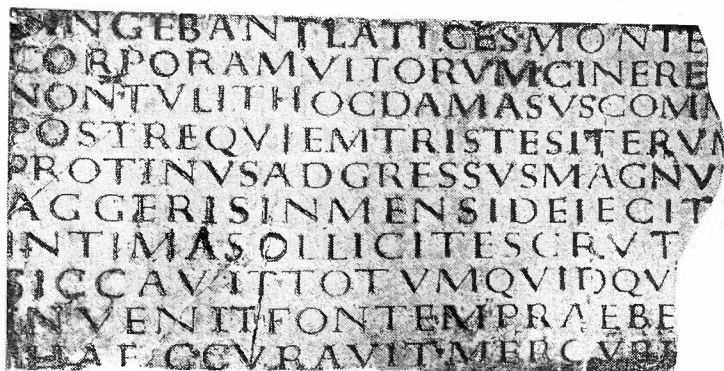 CINGEBANTLATICESMONTE
CORPORAMVLTORVMCINERE
NONTVLITHOCDAMASVSCOMM
POSTREQVIEMTRISTESITERVM
PROTINVSADGRESSVSMAGNV
AGGERISINMENSIDEIECIT
INTIMASOLLICITESCRVT
SICCAVITTOTVMQVIDQV
INVENITFONTEMPRAEBE
HAECCVRAVITMERCVRI